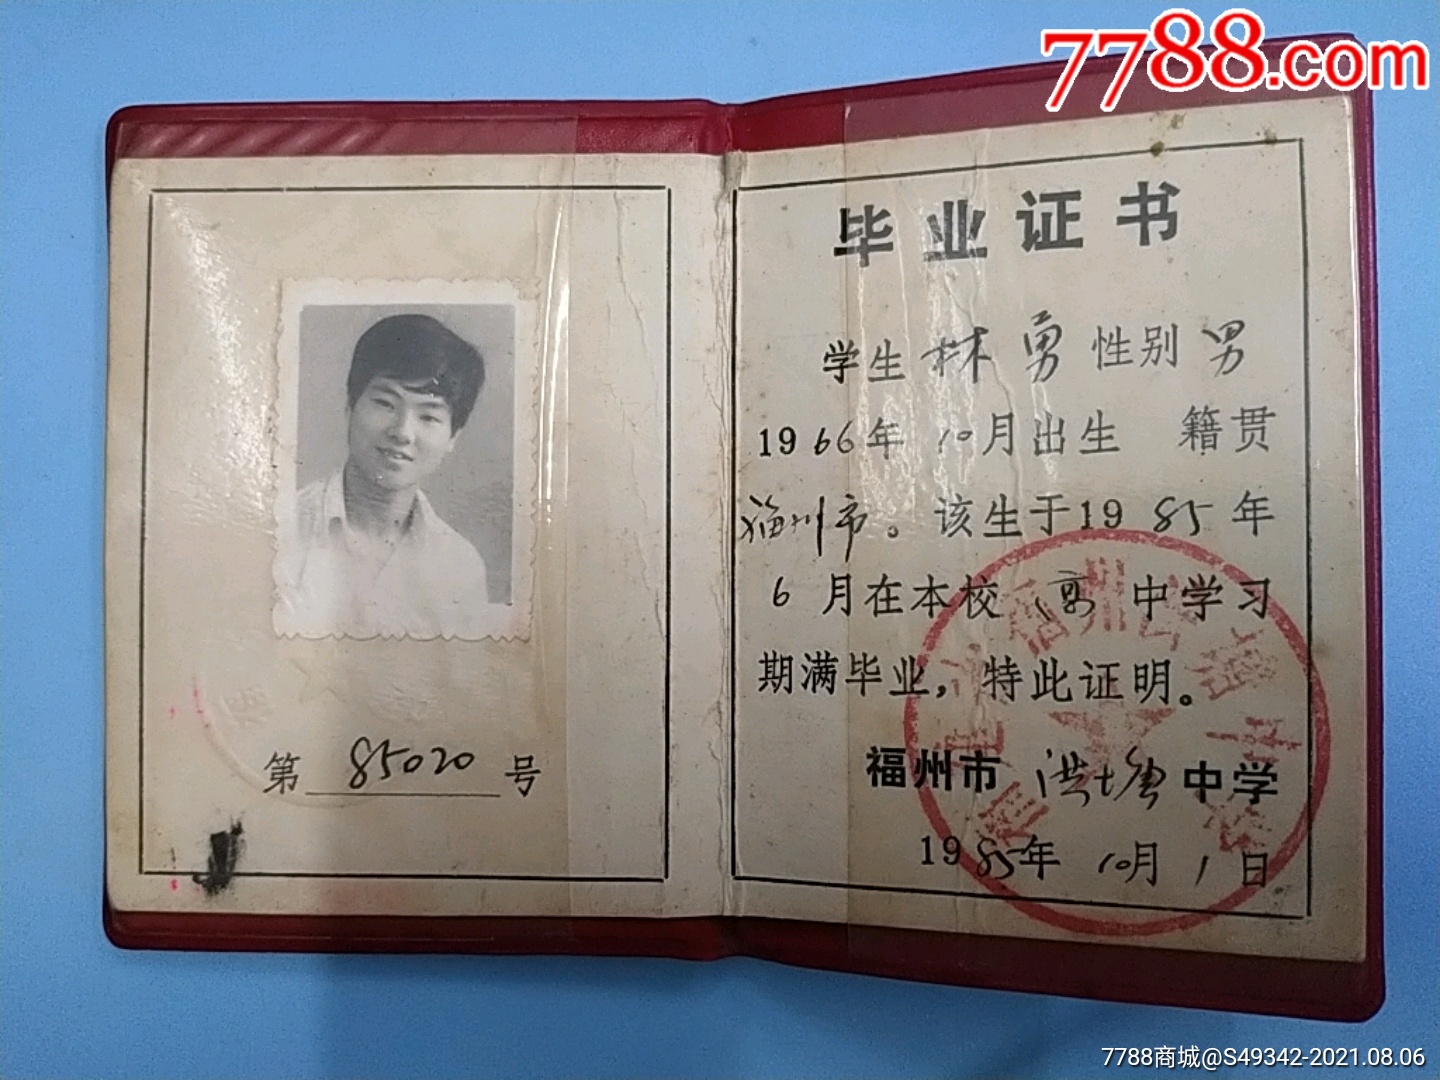 7788.com
第 85020 号
毕业证书
学生 林勇 性别 男
1966年 10月出生 籍贯
福州市。该生于1985年
6月在本校 高 中学习
期满毕业，特此证明。
福州市 洪塘 中学
1985年 10月 1日
7788商城@S49342-2021.08.06